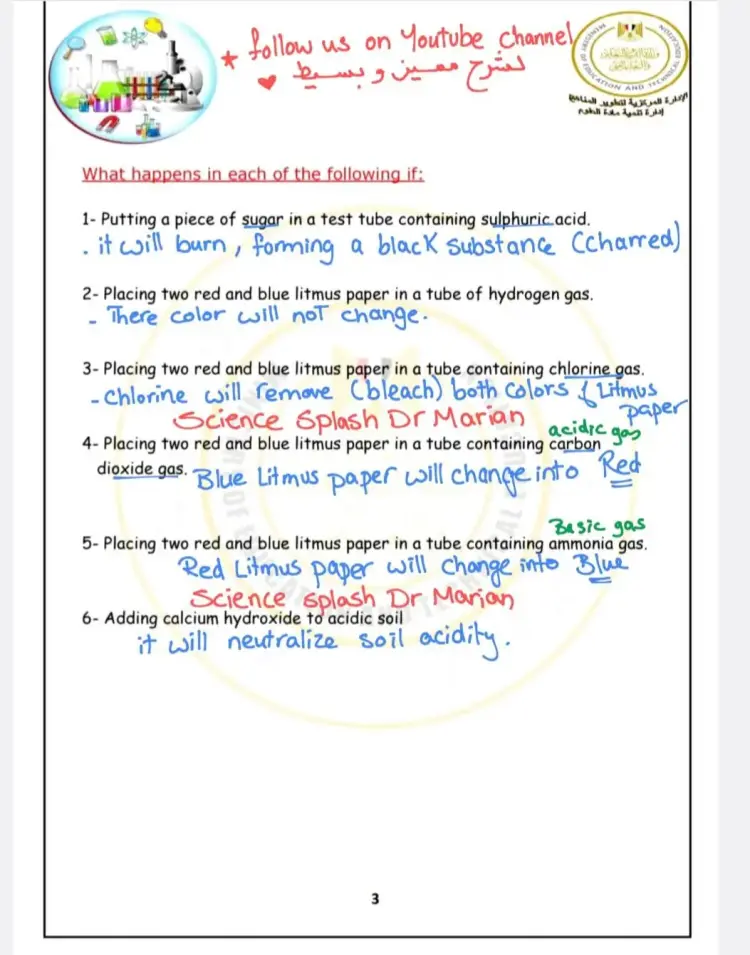 ★ follow us on Youtube channel
لشرح مميز و بسيط
الإدارة المركزية لتطوير المناهج
إدارة تنمية مادة العلوم
What happens in each of the following if:
1- Putting a piece of sugar in a test tube containing sulphuric acid.
. it will burn, forming a black substance (charred)
2- Placing two red and blue litmus paper in a tube of hydrogen gas.
- There color will not change.
3- Placing two red and blue litmus paper in a tube containing chlorine gas.
- Chlorine will remove (bleach) both colors of Litmus
paper
Science Splash Dr Marian
acidic gas
4- Placing two red and blue litmus paper in a tube containing carbon
dioxide gas. Blue Litmus paper will change into Red
Basic gas
5- Placing two red and blue litmus paper in a tube containing ammonia gas.
Red Litmus paper will change into Blue
Science splash Dr Marian
6- Adding calcium hydroxide to acidic soil
it will neutralize soil acidity.
3